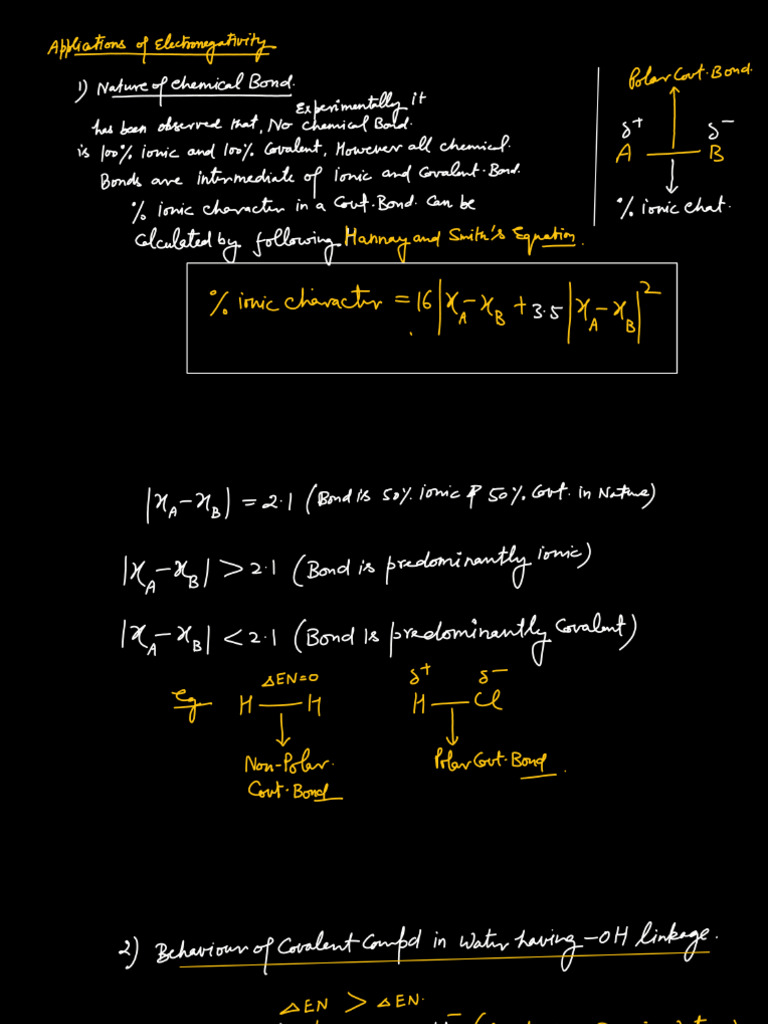 Applications of Electronegativity
1) Nature of Chemical Bond.
Experimentally it
has been observed that, No chemical Bond.
is 100% ionic and 100% Covalent, However all chemical.
Bonds are intermediate of ionic and Covalent. Bond.
% ionic character in a Covt. Bond. Can be
Calculated by following Hannay and Smith's Equation.
Polar Covt. Bond.
δ+ δ−
A — B
% ionic chat.
% ionic character = 16 |x_A − x_B + 3.5 |x_A − x_B|²
|x_A − x_B| = 2.1 (Bond is 50% ionic & 50% Covt. in Nature)
|x_A − x_B| > 2.1 (Bond is predominantly ionic)
|x_A − x_B| < 2.1 (Bond is predominantly Covalent)
ΔEN=0 δ+ δ−
eg. H — H H — Cl
Non-Polar. Polar Covt. Bond.
Covt. Bond
2) Behaviour of Covalent Compd in Water having −OH linkage.
ΔEN > ΔEN.